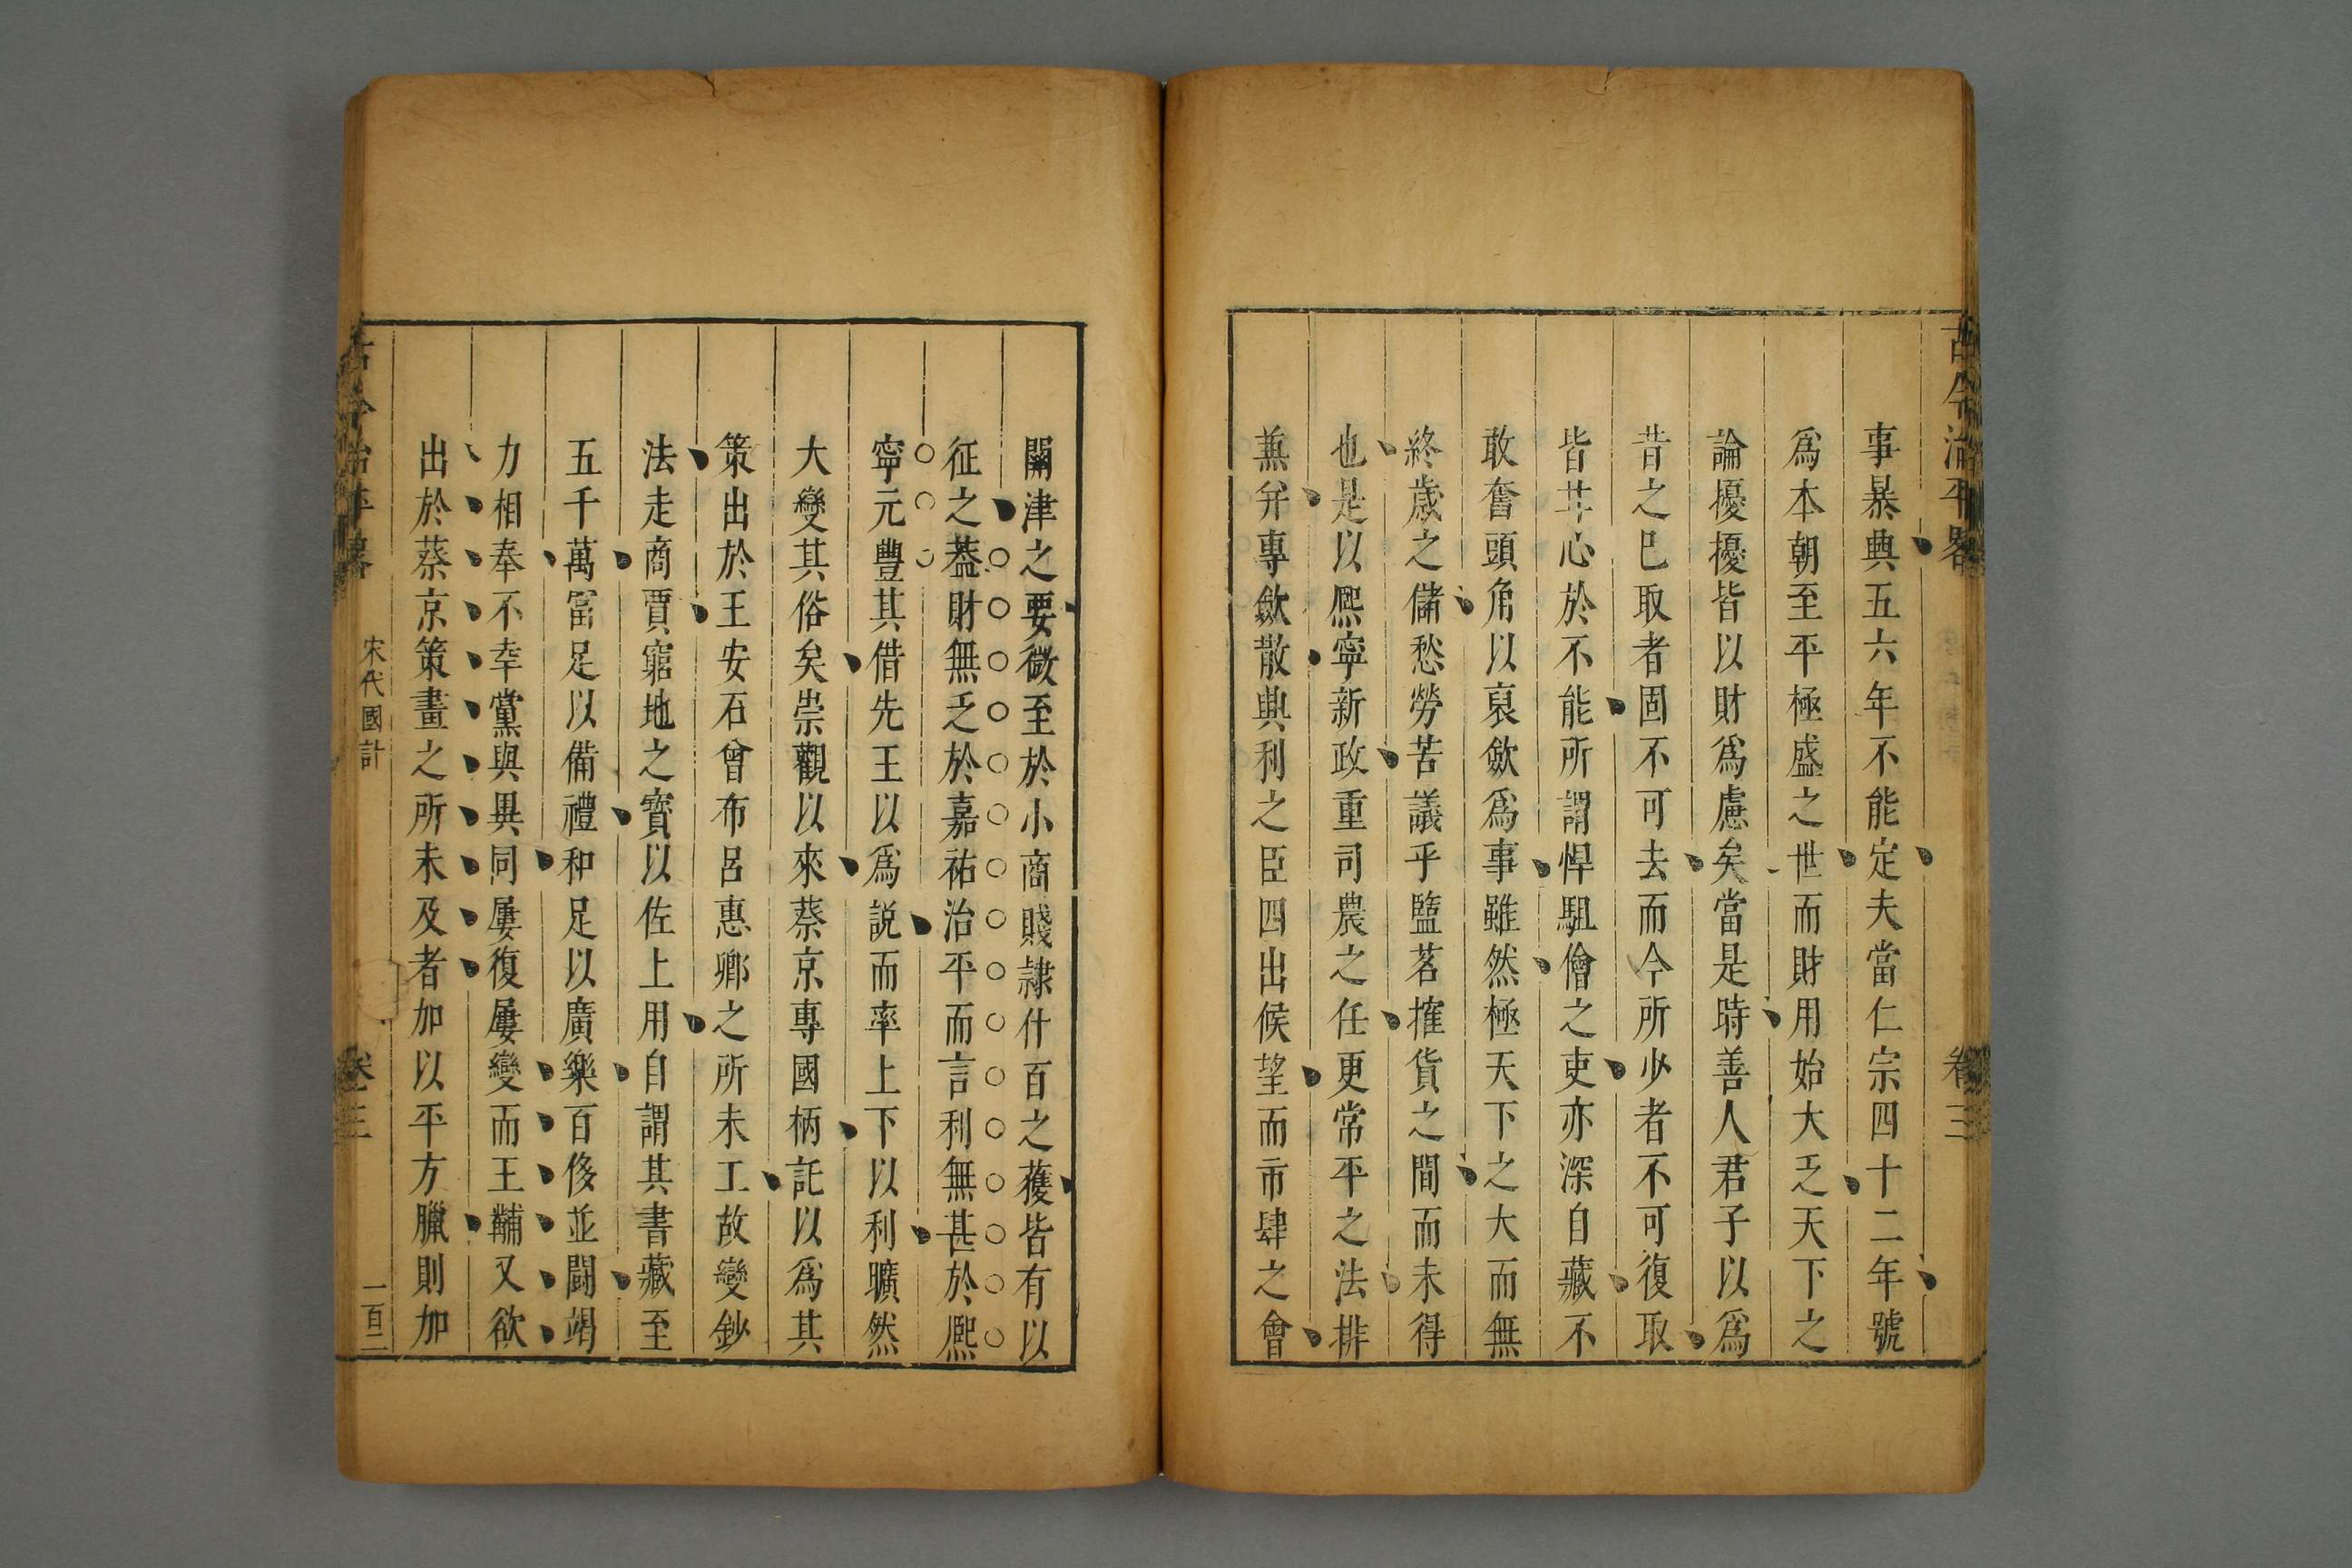 古今治平畧
卷三
事暴典五六年不能定夫當仁宗四十二年號
爲本朝至平極盛之世而財用始大乏天下之
論擾擾皆以財爲慮矣當是時善人君子以爲
昔之巳取者固不可去而今所少者不可復取
皆甘心於不能所謂悍駔儈之吏亦深自藏不
敢奮頭角以裒歛爲事雖然極天下之大而無
終歲之儲愁勞苦議乎鹽茗搉貨之間而未得
也是以熈寧新政重司農之任更常平之法排
兼并專斂散興利之臣四出候望而市肆之會
關津之要微至於小商賤隷什百之蓰皆有以
征之葢財無乏於嘉祐治平而言利無甚於熈
寧元豐其借先王以爲説而率上下以利曠然
大變其俗矣崇觀以來蔡京專國柄託以爲其
策出於王安石曾布呂惠卿之所未工故變鈔
法走商賈窮地之寳以佐上用自謂其書藏至
五千萬冨足以備禮和足以廣樂百侈並鬪竭
力相奉不幸黨與異同屢復屢變而王黼又欲
出於蔡京策畫之所未及者加以平方臘則加
古今治平畧
宋代國計
卷三
一百二